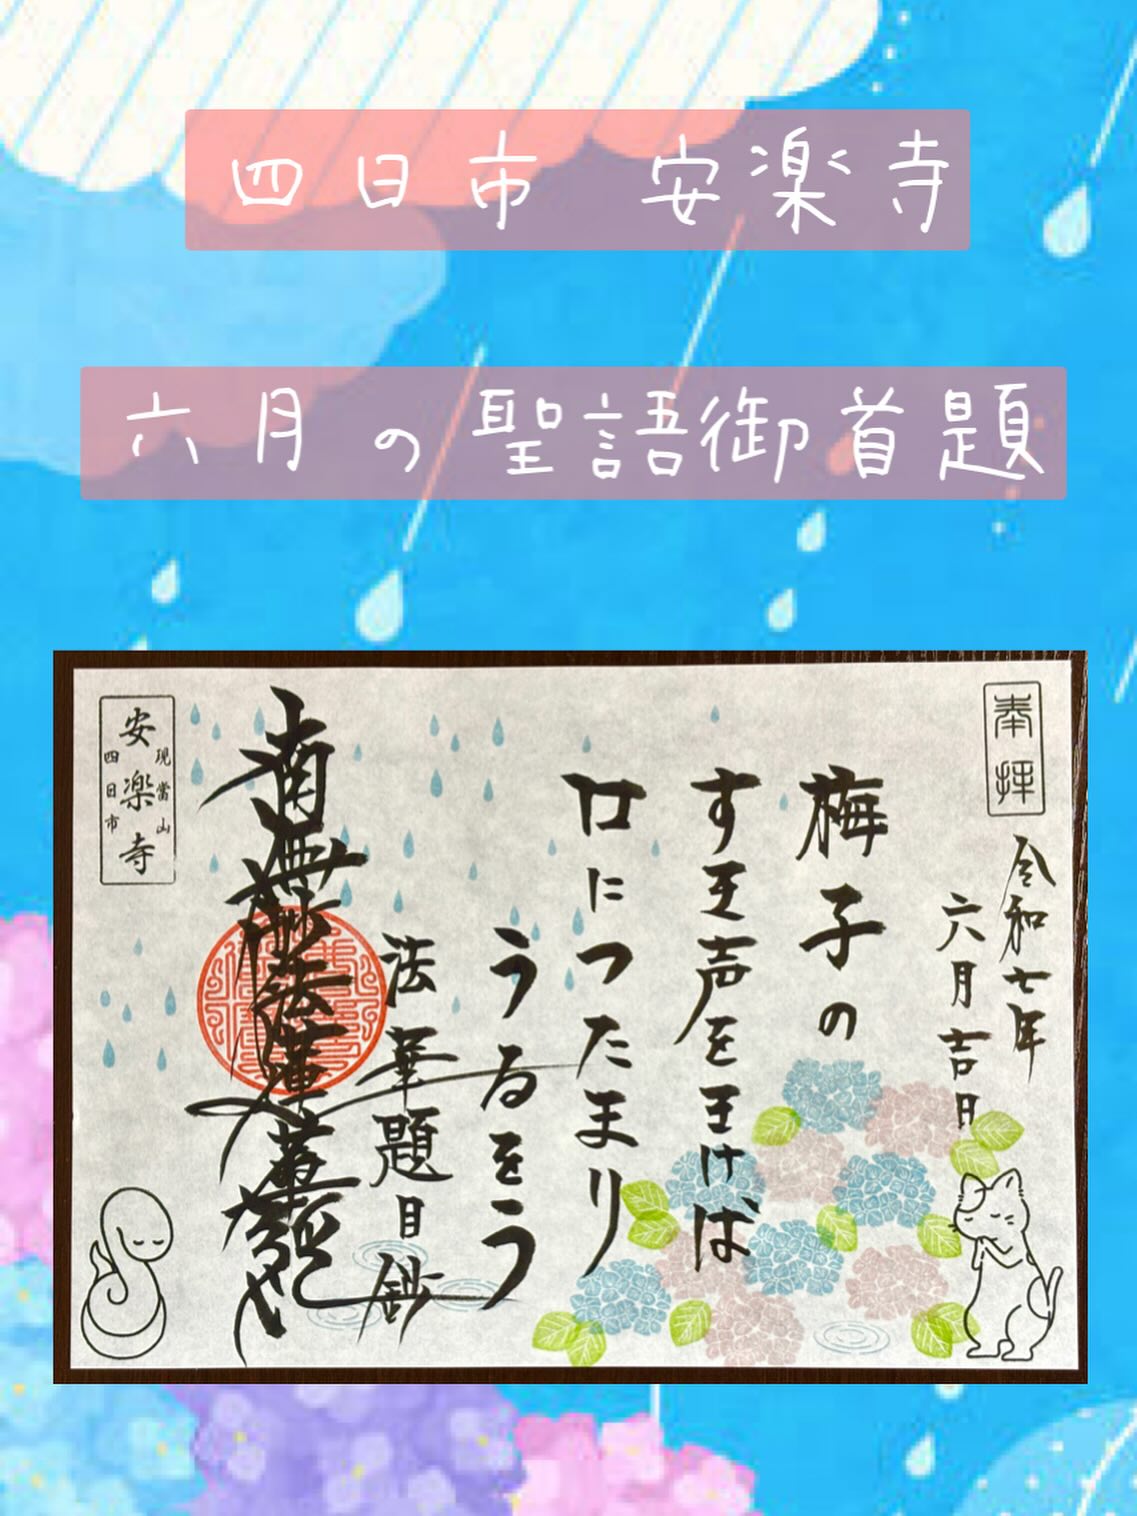 四日市 安楽寺
六月の聖語御首題
奉拝
令和七年
六月吉日
梅子の
すき声をきけば
口につたまり
うるをう
法華題目鈔
南無妙法蓮華経
現當山
安楽寺
四日市